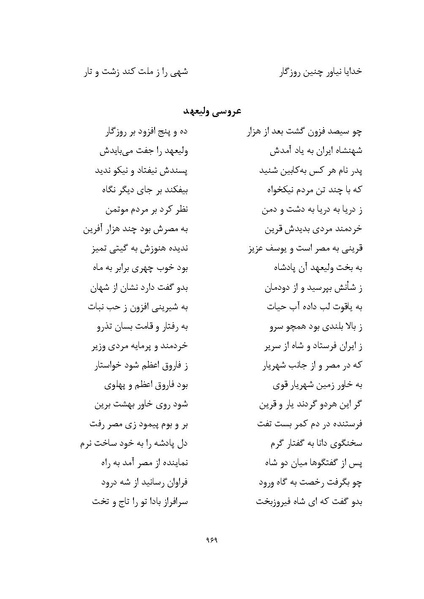 خدایا نیاور چنین روزگار شهی را ز ملت کند زشت و تار
عروسی ولیعهد
چو سیصد فزون گشت بعد از هزار ده و پنج افزود بر روزگار
شهنشاه ایران به یاد آمدش ولیعهد را جفت می‌بایدش
پدر نام هر کس به‌کابین شنید پسندش نیفتاد و نیکو ندید
که با چند تن مردم نیکخواه بیفکند بر جای دیگر نگاه
ز دریا به دریا به دشت و دمن نظر کرد بر مردم موتمن
خردمند مردی بدیدش قرین به مصرش بود چند هزار آفرین
قرینی به مصر است و یوسف عزیز ندیده هنوزش به گیتی تمیز
به بخت ولیعهد آن پادشاه بود خوب چهری برابر به ماه
ز شأنش بپرسید و از دودمان بدو گفت دارد نشان از شهان
به یاقوت لب داده آب حیات به شیرینی افزون ز حب نبات
ز بالا بلندی بود همچو سرو به رفتار و قامت بسان تذرو
ز ایران فرستاد و شاه از سریر خردمند و پرمایه مردی وزیر
که در مصر و از جانب شهریار ز فاروق اعظم شود خواستار
به خاور زمین شهریار قوی بود فاروق اعظم و پهلوی
گر این هردو گردند یار و قرین شود روی خاور بهشت برین
فرستنده در دم کمر بست تفت بر و بوم پیمود زی مصر رفت
سخنگوی دانا به گفتار گرم دل پادشه را به خود ساخت نرم
پس از گفتگوها میان دو شاه نماینده از مصر آمد به راه
چو بگرفت رخصت به گاه ورود فراوان رسانید از شه درود
بدو گفت که ای شاه فیروزبخت سرافراز بادا تو را تاج و تخت
۹۶۹